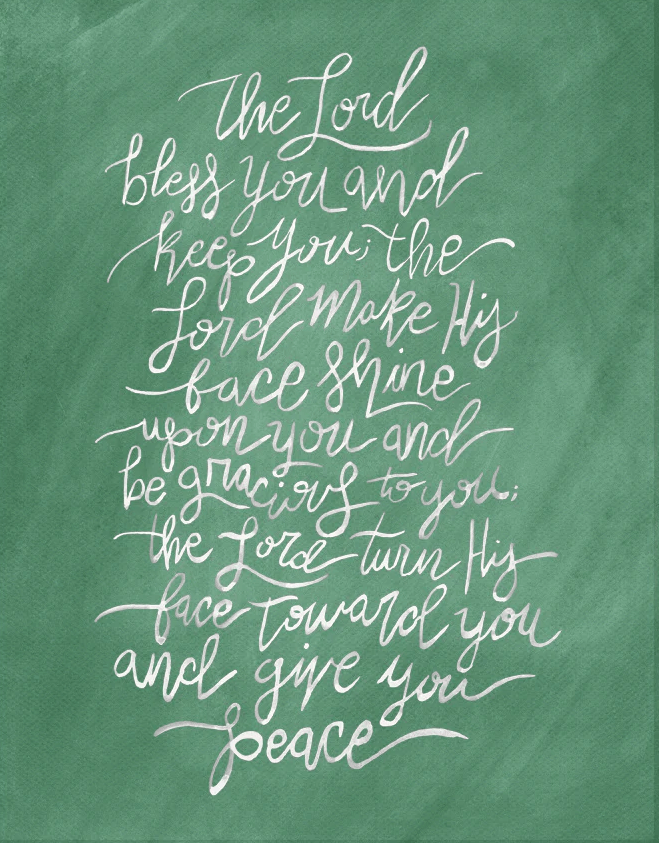 The Lord
bless you and
keep you; the
Lord Make His
face shine
upon you and
be gracious to you;
the Lord turn His
face toward you
and give you
peace